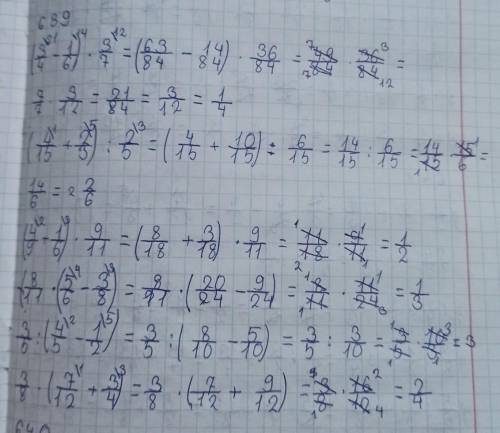 639
(3/4 - 1/6) · 3/7 = (63/84 - 14/84) · 36/84 = 49/84 · 36/84 =
7/7 · 3/12 = 21/84 = 3/12 = 1/4
(4/15 + 2/3) : 2/5 = (4/15 + 10/15) : 6/15 = 14/15 : 6/15 = 14/15 · 15/6 =
14/6 = 2 2/6
(4/9 + 1/6) · 9/11 = (8/18 + 3/18) · 9/11 = 11/18 · 9/11 = 1/2
8/11 · (5/6 - 3/8) = 8/11 · (20/24 - 9/24) = 8/11 · 11/24 = 1/3
3/5 : (4/5 - 1/2) = 3/5 : (8/10 - 5/10) = 3/5 : 3/10 = 3/5 · 10/3 = 3
3/8 · (7/12 + 3/4) = 3/8 · (7/12 + 9/12) = 3/8 · 16/12 = 2/4
640